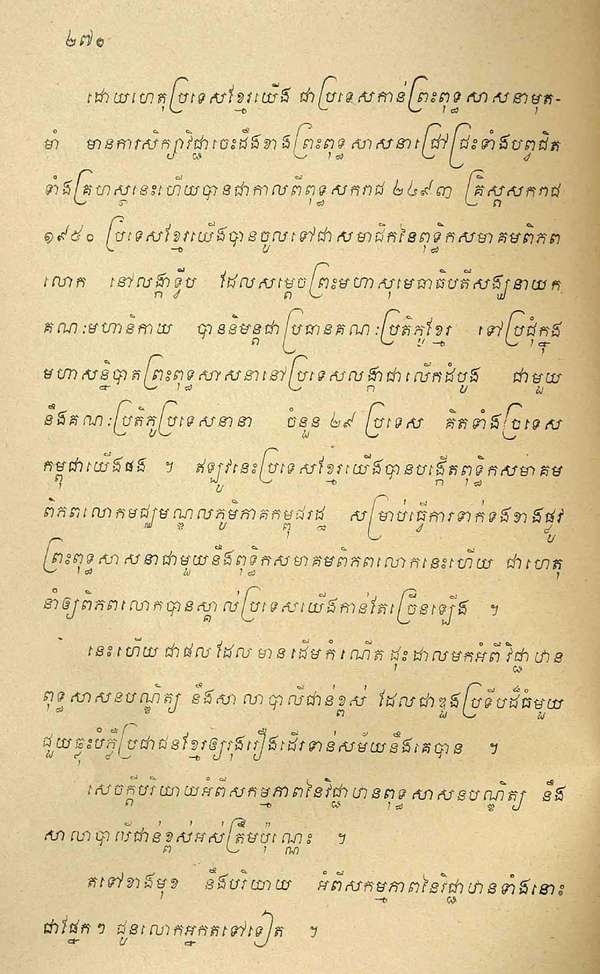 ២៧១
ដោយហេតុប្រទេសខ្មែរយើង ជាប្រទេសកាន់ព្រះពុទ្ធសាសនាមុត-
មាំ មានការសិក្សាវិជ្ជាចេះដឹងខាងព្រះពុទ្ធសាសនាជ្រៅជ្រះទាំងបព្វជិត
ទាំងគ្រហស្ថនេះហើយបានជាកាលពីពុទ្ធសករាជ ២៤៩៣ គ្រិស្តសករាជ
១៩៥០ ប្រទេសខ្មែរយើងបានចូលទៅជាសមាជិកនៃពុទ្ធិកសមាគមពិភព
លោក នៅលង្កាទ្វីប ដែលសម្តេចព្រះមហាសុមេធាធិបតីសង្ឃនាយក
គណៈមហានិកាយ បាននិមន្តជាប្រធានគណៈប្រតិភូខ្មែរ ទៅប្រជុំក្នុង
មហាសន្និបាតព្រះពុទ្ធសាសនានៅប្រទេសលង្កាជាលើកដំបូង ជាមួយ
នឹងគណៈប្រតិភូប្រទេសនានា ចំនួន ២៩ ប្រទេស គិតទាំងប្រទេស
កម្ពុជាយើងផង ។ ឥឡូវនេះប្រទេសខ្មែរយើងបានបង្កើតពុទ្ធិកសមាគម
ពិភពលោកមជ្ឈមណ្ឌលភូមិភាគកម្ពុជរដ្ឋ សម្រាប់ធ្វើការទាក់ទងខាងផ្លូវ
ព្រះពុទ្ធសាសនាជាមួយនឹងពុទ្ធិកសមាគមពិភពលោកនេះហើយ ជាហេតុ
នាំឲ្យពិភពលោកបានស្គាល់ប្រទេសយើងកាន់តែច្រើនឡើង ។
នេះហើយ ជាផលដែលមានដើមកំណើត ដុះដាលមកអំពីវិជ្ជាឋាន
ពុទ្ធសាសនបណ្ឌិត្យ នឹងសាលាបាលីជាន់ខ្ពស់ ដែលជាឌួងប្រទីបដ៏ធំមួយ
ជួយធ្លុះបំភ្លឺប្រជាជនខ្មែរឲ្យរុងរឿងដើរទាន់សម័យនឹងគេបាន ។
សេចក្តីបរិយាយអំពីសកម្មភាពនៃវិជ្ជាឋានពុទ្ធសាសនបណ្ឌិត្យ នឹង
សាលាបាលីជាន់ខ្ពស់អស់ត្រឹមប៉ុណ្ណេះ ។
តទៅខាងមុខ នឹងបរិយាយ អំពីសកម្មភាពនៃវិជ្ជាឋានទាំងនោះ
ជាផ្នែកៗ ជូនលោកអ្នកតទៅទៀត ។